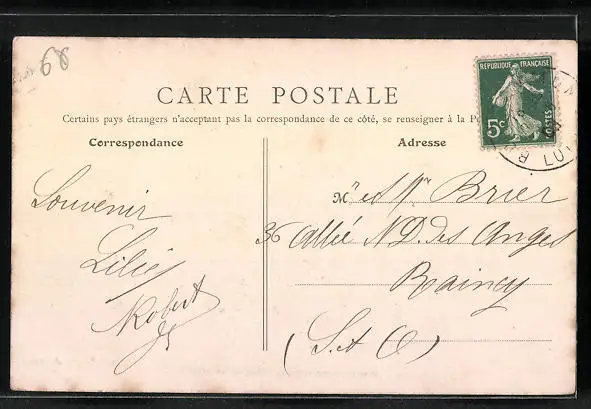 68
CARTE POSTALE
Certains pays étrangers n'acceptant pas la correspondance de ce côté, se renseigner à la Po
Correspondance
Adresse
RÉPUBLIQUE FRANÇAISE
5c
POSTES
Souvenir
Lilie
Robert
Mr et Mme Brier
36 allée N.D. des Anges
Raincy
(S. et O)